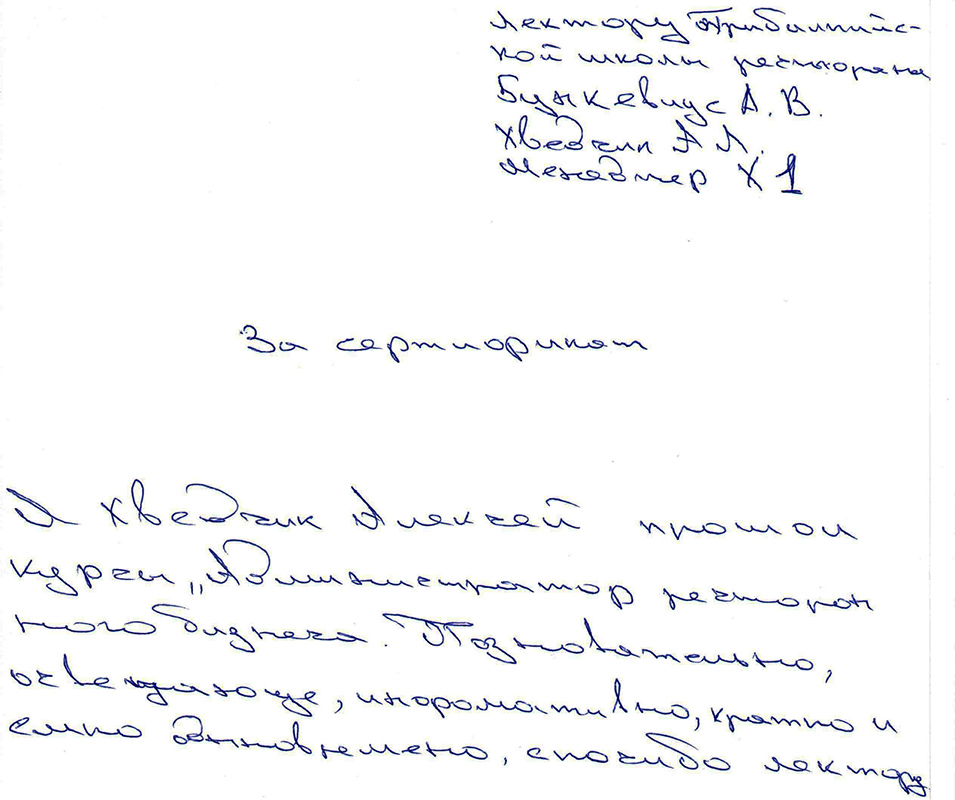 Лектору Прибалтийс-
кой школы ресторана
Бункевиус А. В.
Хведчик А Л.
Менеджер Х 1
За сертификат
Я Хведчик Алексей прошол
курсы „Администратор ресторан
ного бизнеса. Познавательно,
освежающе, информативно, кратко и
емко одновремено, спасибо лектору